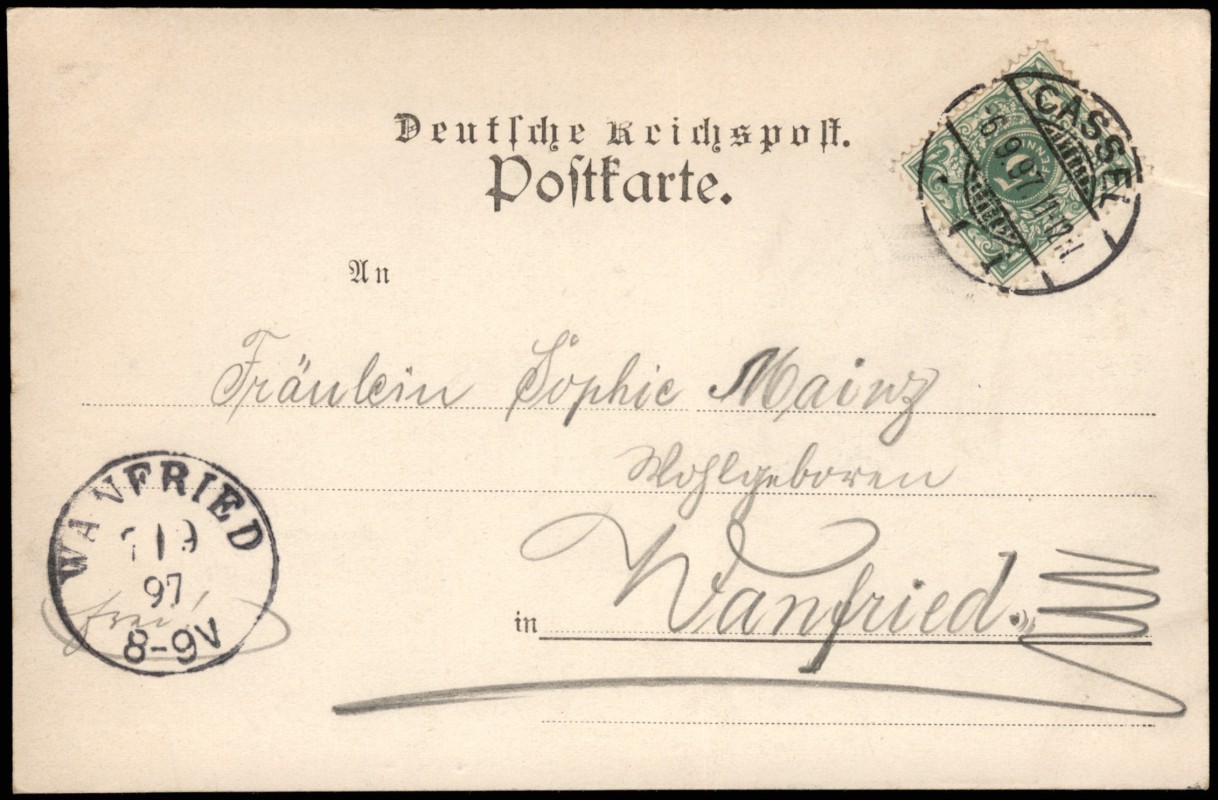 Deutsche Reichspost.
Postkarte.
CASSEL
-6.9.97 11-12
1
5
An
Fräulein Sophie Mainz
Wohlgeboren
in Wanfried.
WANFRIED
9
97
8-9V
frei!